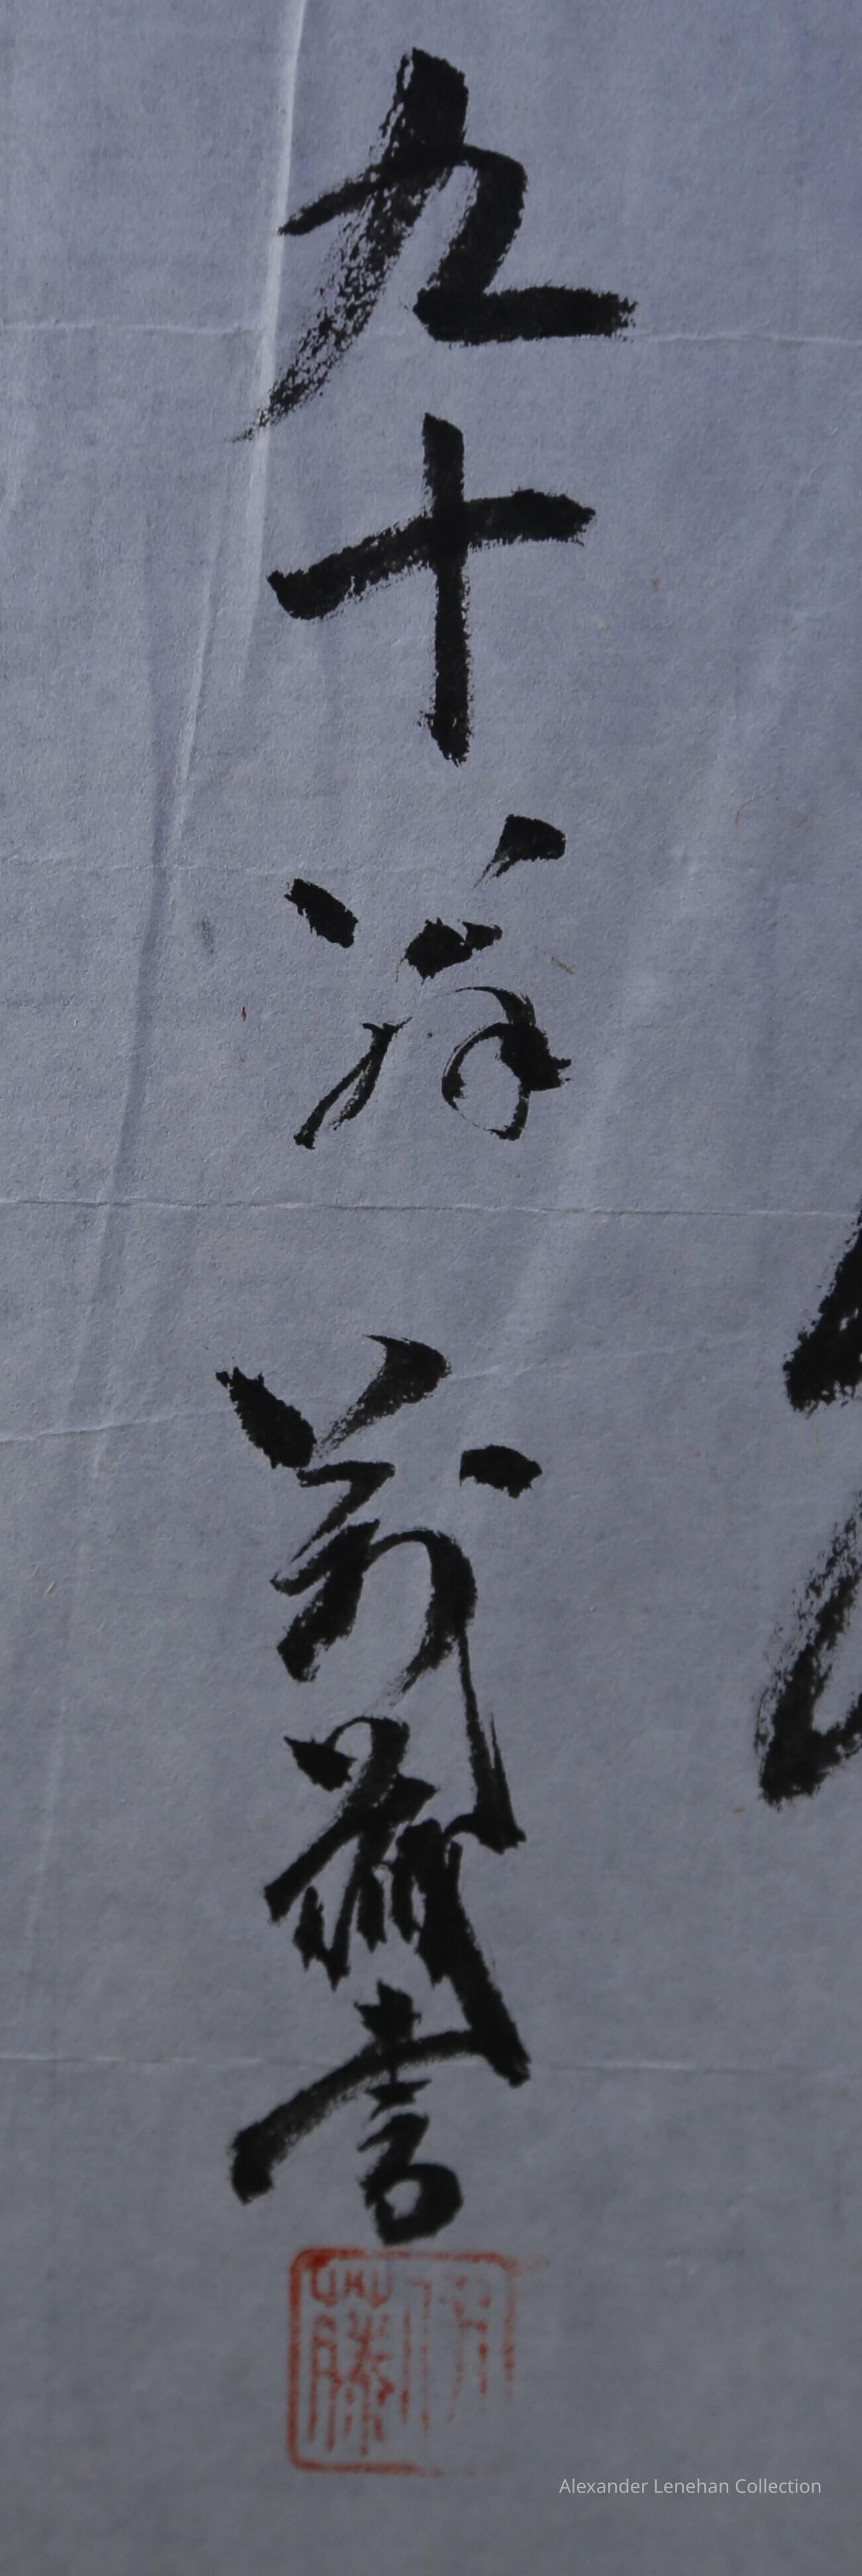 九十翁 萬蔵書
伊藤
Alexander Lenehan Collection